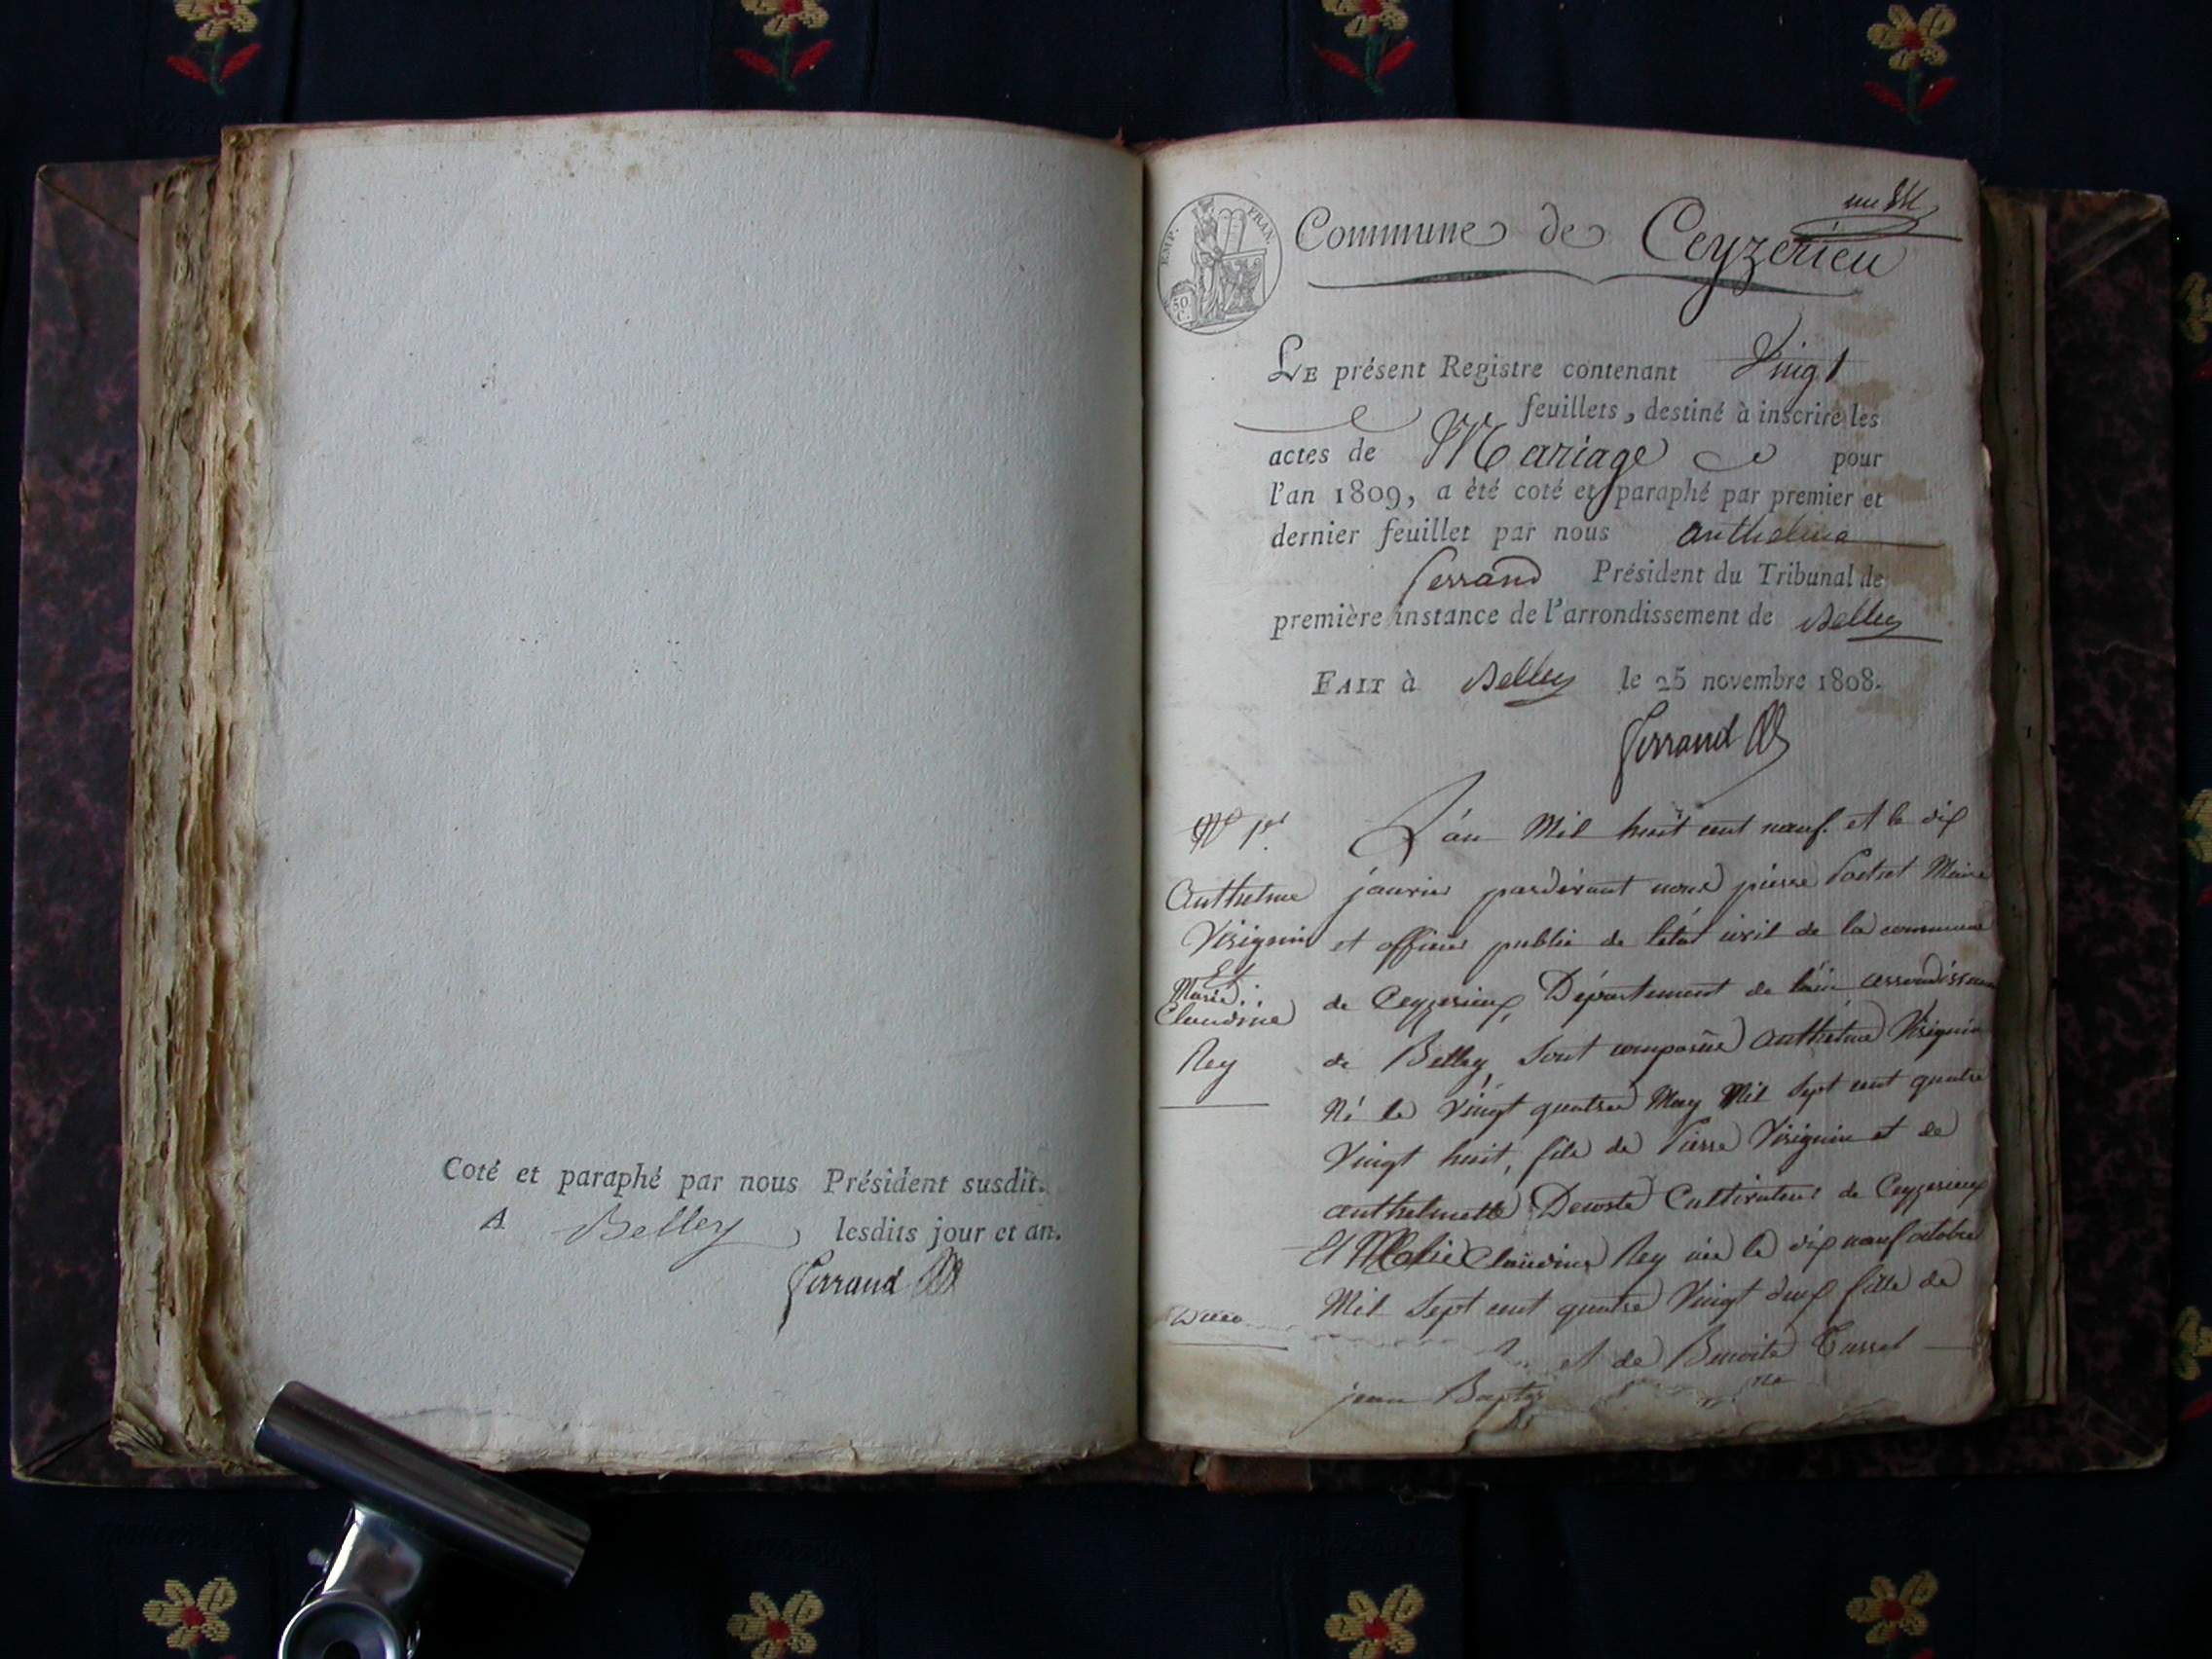 Coté et paraphé par nous Président susdit.
A Belley, lesdits jour et an.
Ferrand
EMP. FRAN.
50 C.
Commune de Ceyzerieu
LE présent Registre contenant Vingt
feuillets, destiné à inscrire les
actes de Mariage pour
l'an 1809, a été coté et paraphé par premier et
dernier feuillet par nous anthelme
ferrand Président du Tribunal de
première instance de l'arrondissement de Belley
FAIT à Belley le 25 novembre 1808.
Ferrand
Anthelme
Virignin
Et
Marie
Claudine
Rey
L'an Mil huit cent neuf et le dix
janvier pardevant nous pierre Maire
et officier public de létat civil de la commune
de Ceyzerieux, Département de l'ain arrondissement
de Belley, sont comparus anthelme Virignin
Né le vingt quatre May Mil sept cent quatre
vingt huit, fils de Pierre Virignin et de
anthelmette Decoste Cultivateurs de Ceyzerieux
Et Marie Claudine Rey née le dix neuf octobre
Mil sept cent quatre vingt deux fille de
et de Benoite
jean Baptiste